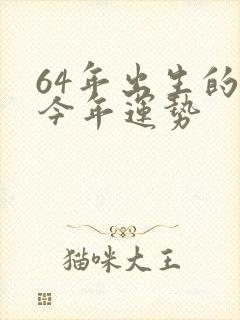 64年出生的
今年運勢
猫咪大王